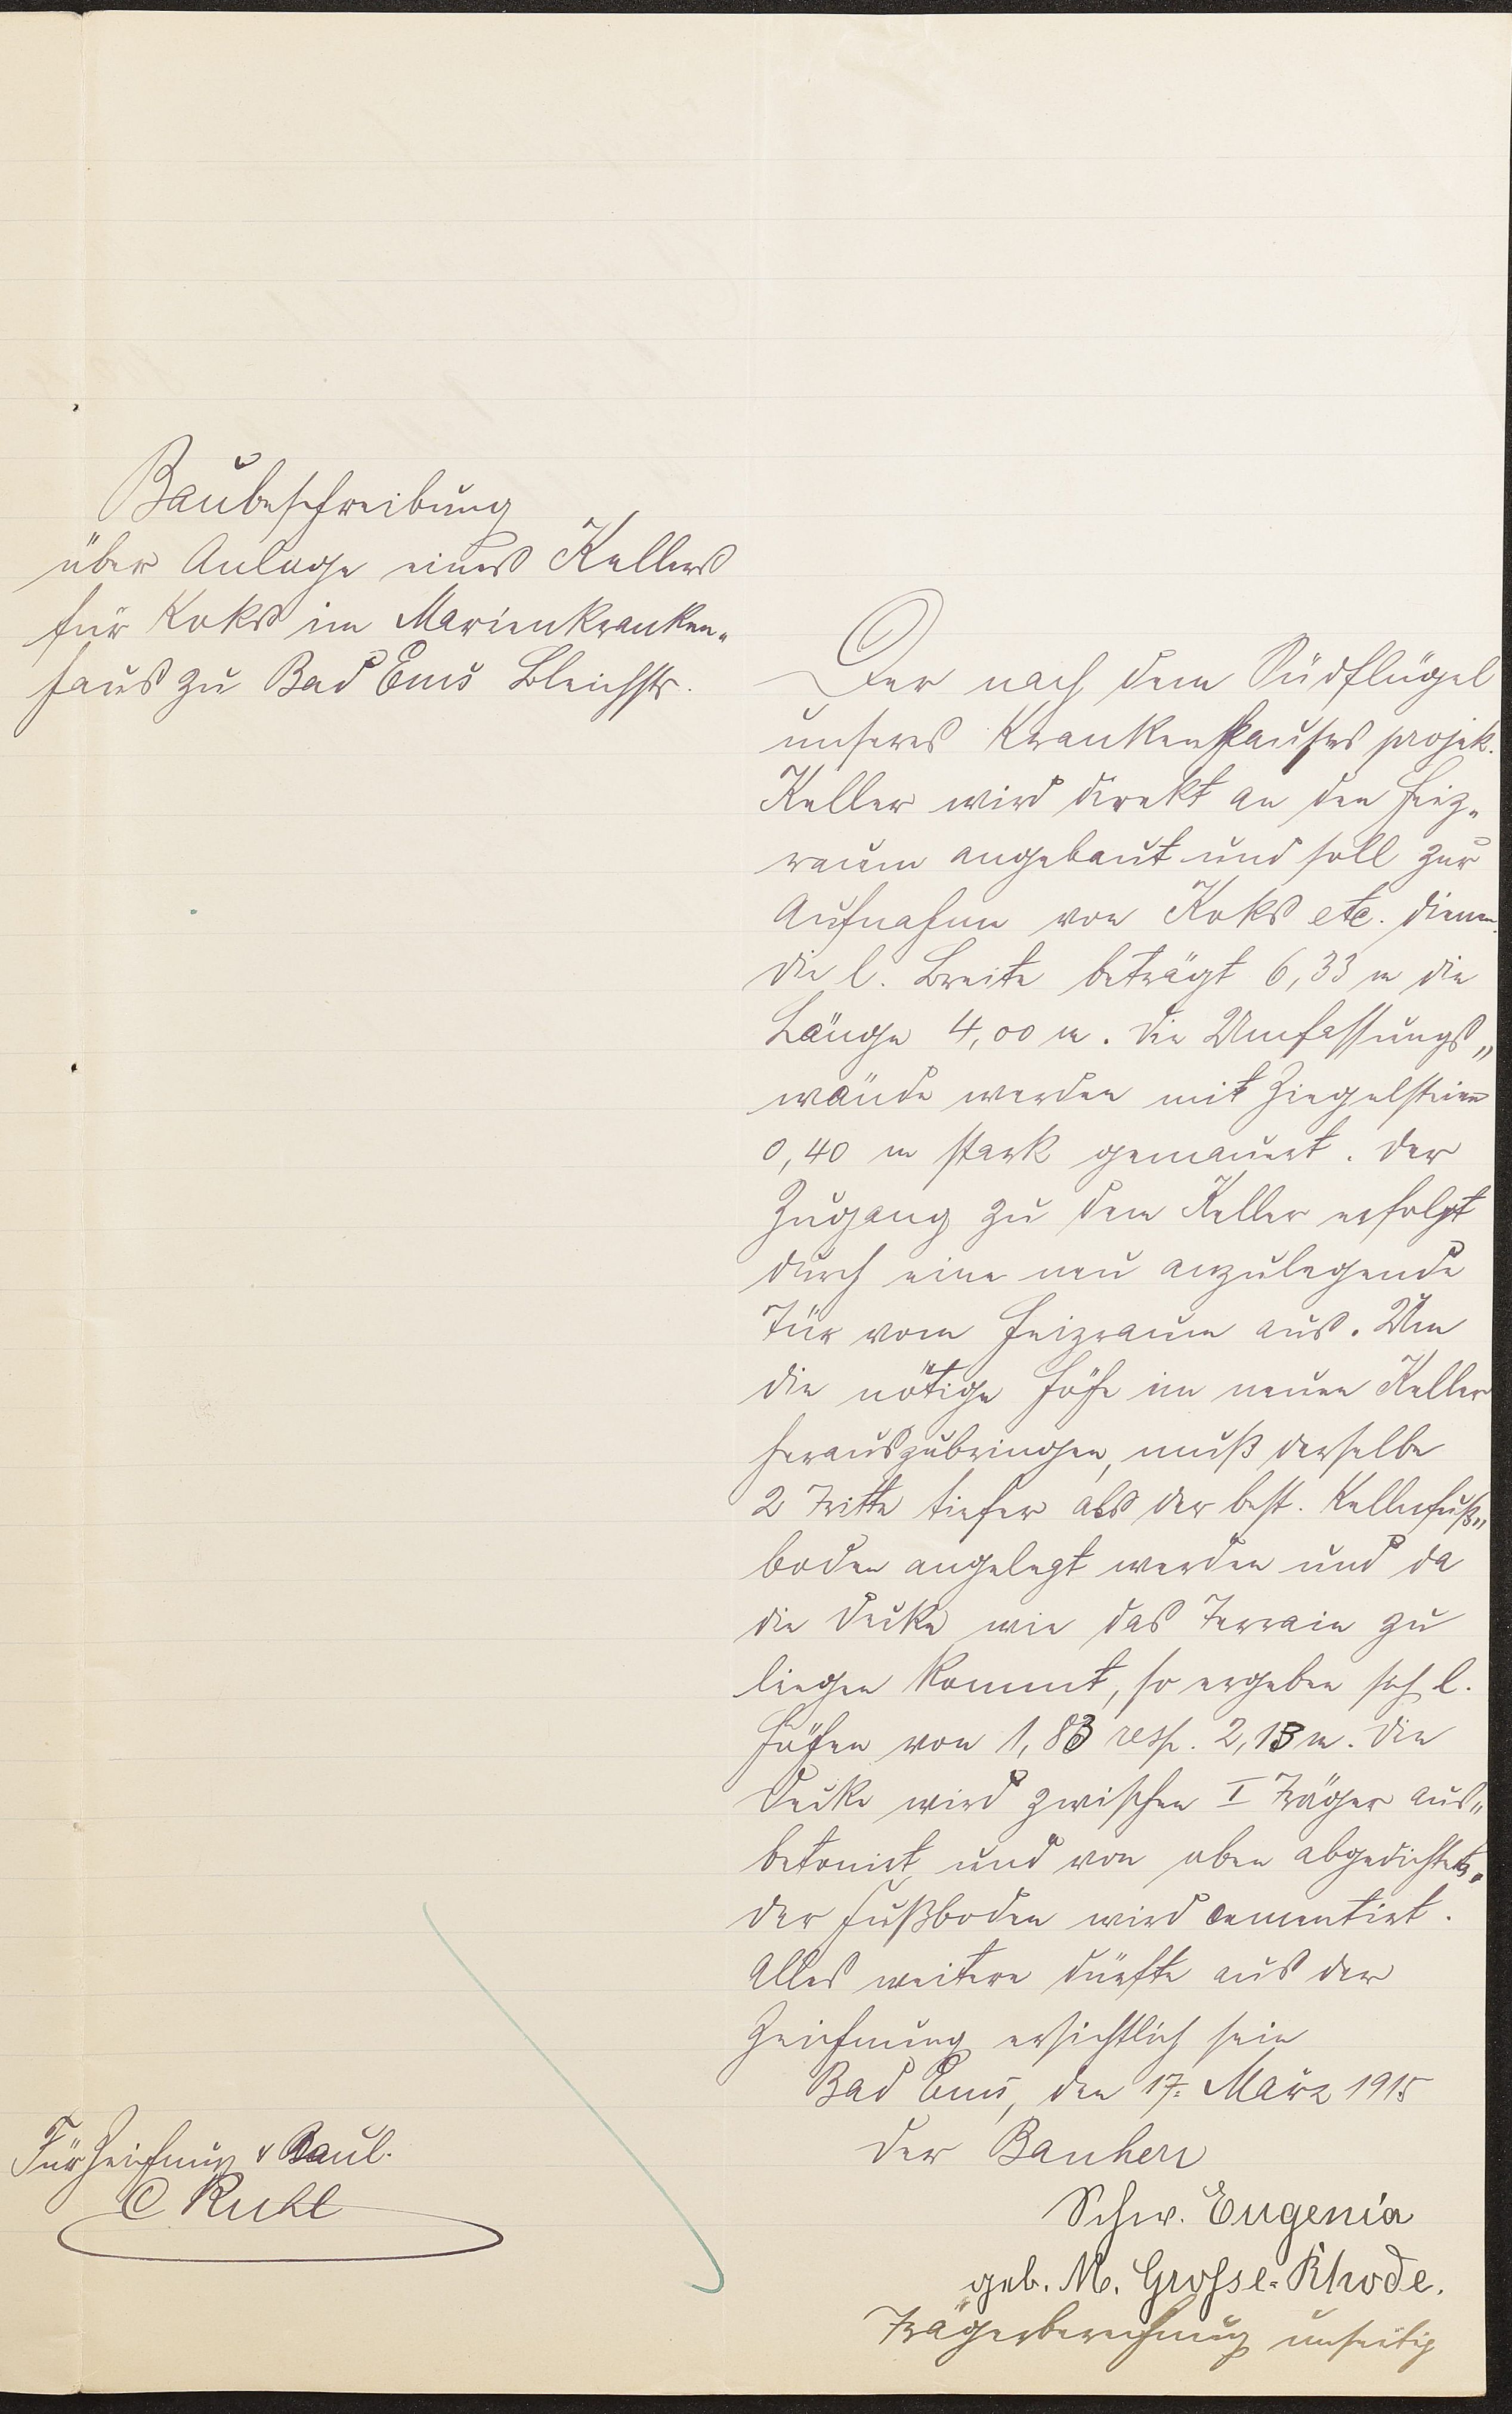 Baubeschreibung
über Anlage eines Kellers
für Koks im Marienkranken-
haus zu Bad Ems Bleichstr.
Der nach dem Südflügel
unseres Krankenhauses projek.
Keller wird direkt an den Heiz-
raum angebaut und soll zur
Aufnahme von Koks etc. dienen.
die l. Breite beträgt 6,33 m die
Länge 4,00 m. Die Umfassungs-
wände werden mit Ziegelsteine
0,40 m stark gemauert. Der
Zugang zu dem Keller erfolgt
durch eine neu anzulegende
Tür vom Heizraum aus. Um
die nötige Höhe im neuen Keller
herauszubringen, muß derselbe
2 Tritte tiefer als der best. Kellerfuß-
boden angelegt werden und da
die Decke wie das Terrain zu
liegen kommt, so ergeben sich l.
Höhen von 1,83 resp. 2,13 m. Die
Decke wird zwischen I Träger aus-
betonirt und von oben abgedichtet.
Der Fußboden wird cementirt.
Alles weitere dürfte aus der
Zeichnung ersichtlich sein
Bad Ems, den 17. März 1915
Der Bauherr
Schw. Eugenia
geb. M. Grosse-Rhode.
Trägerberechnung umseitig
Für Zeichnung & Baul.
C Ruhl